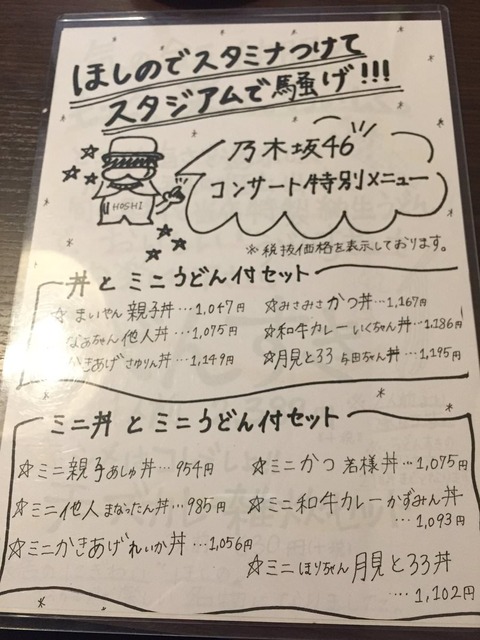 ほしのでスタミナつけて
スタジアムで騒げ!!!
HOSHI
乃木坂46
コンサート特別メニュー
※税抜価格を表示しております。
丼とミニうどん付セット
☆まいやん親子丼…1,047円
なぁちゃん他人丼…1,075円
かきあげさゆりん丼…1,149円
☆みさみさかつ丼…1,167円
☆和牛カレーいくちゃん丼…1,186円
☆月見とろろ与田ちゃん丼…1,195円
ミニ丼とミニうどん付セット
☆ミニ親子あしゅ丼…954円
☆ミニ他人まなったん丼…985円
☆ミニかきあげれいか丼…1,056円
☆ミニかつ若様丼…1,075円
☆ミニ和牛カレーかずみん丼
…1,093円
☆ミニほりちゃん月見とろろ丼
…1,102円